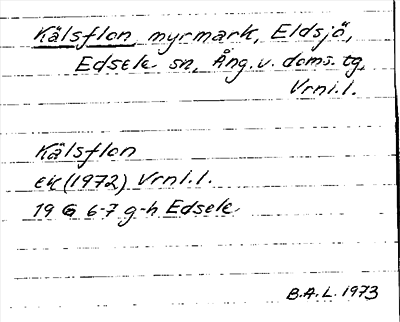 Kälsflon, myrmark, Eldsjö,
Edsele sn, Ång. v. doms. tg,
Vrni.l.
Kälsflon
ek (1972) Vrnl.l.
19 G 6-7 g-h Edsele
B.A.L. 1973